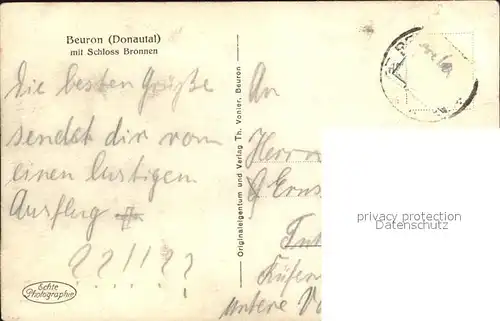 Beuron (Donautal)
mit Schloss Bronnen
Die besten Grüße
sendet dir vom
einen lustigen
Ausflug
Echte
Photographie
Originaleigentum und Verlag Th. Vonier, Beuron
An
Herrn
Ernst
untere
privacy protection
Datenschutz